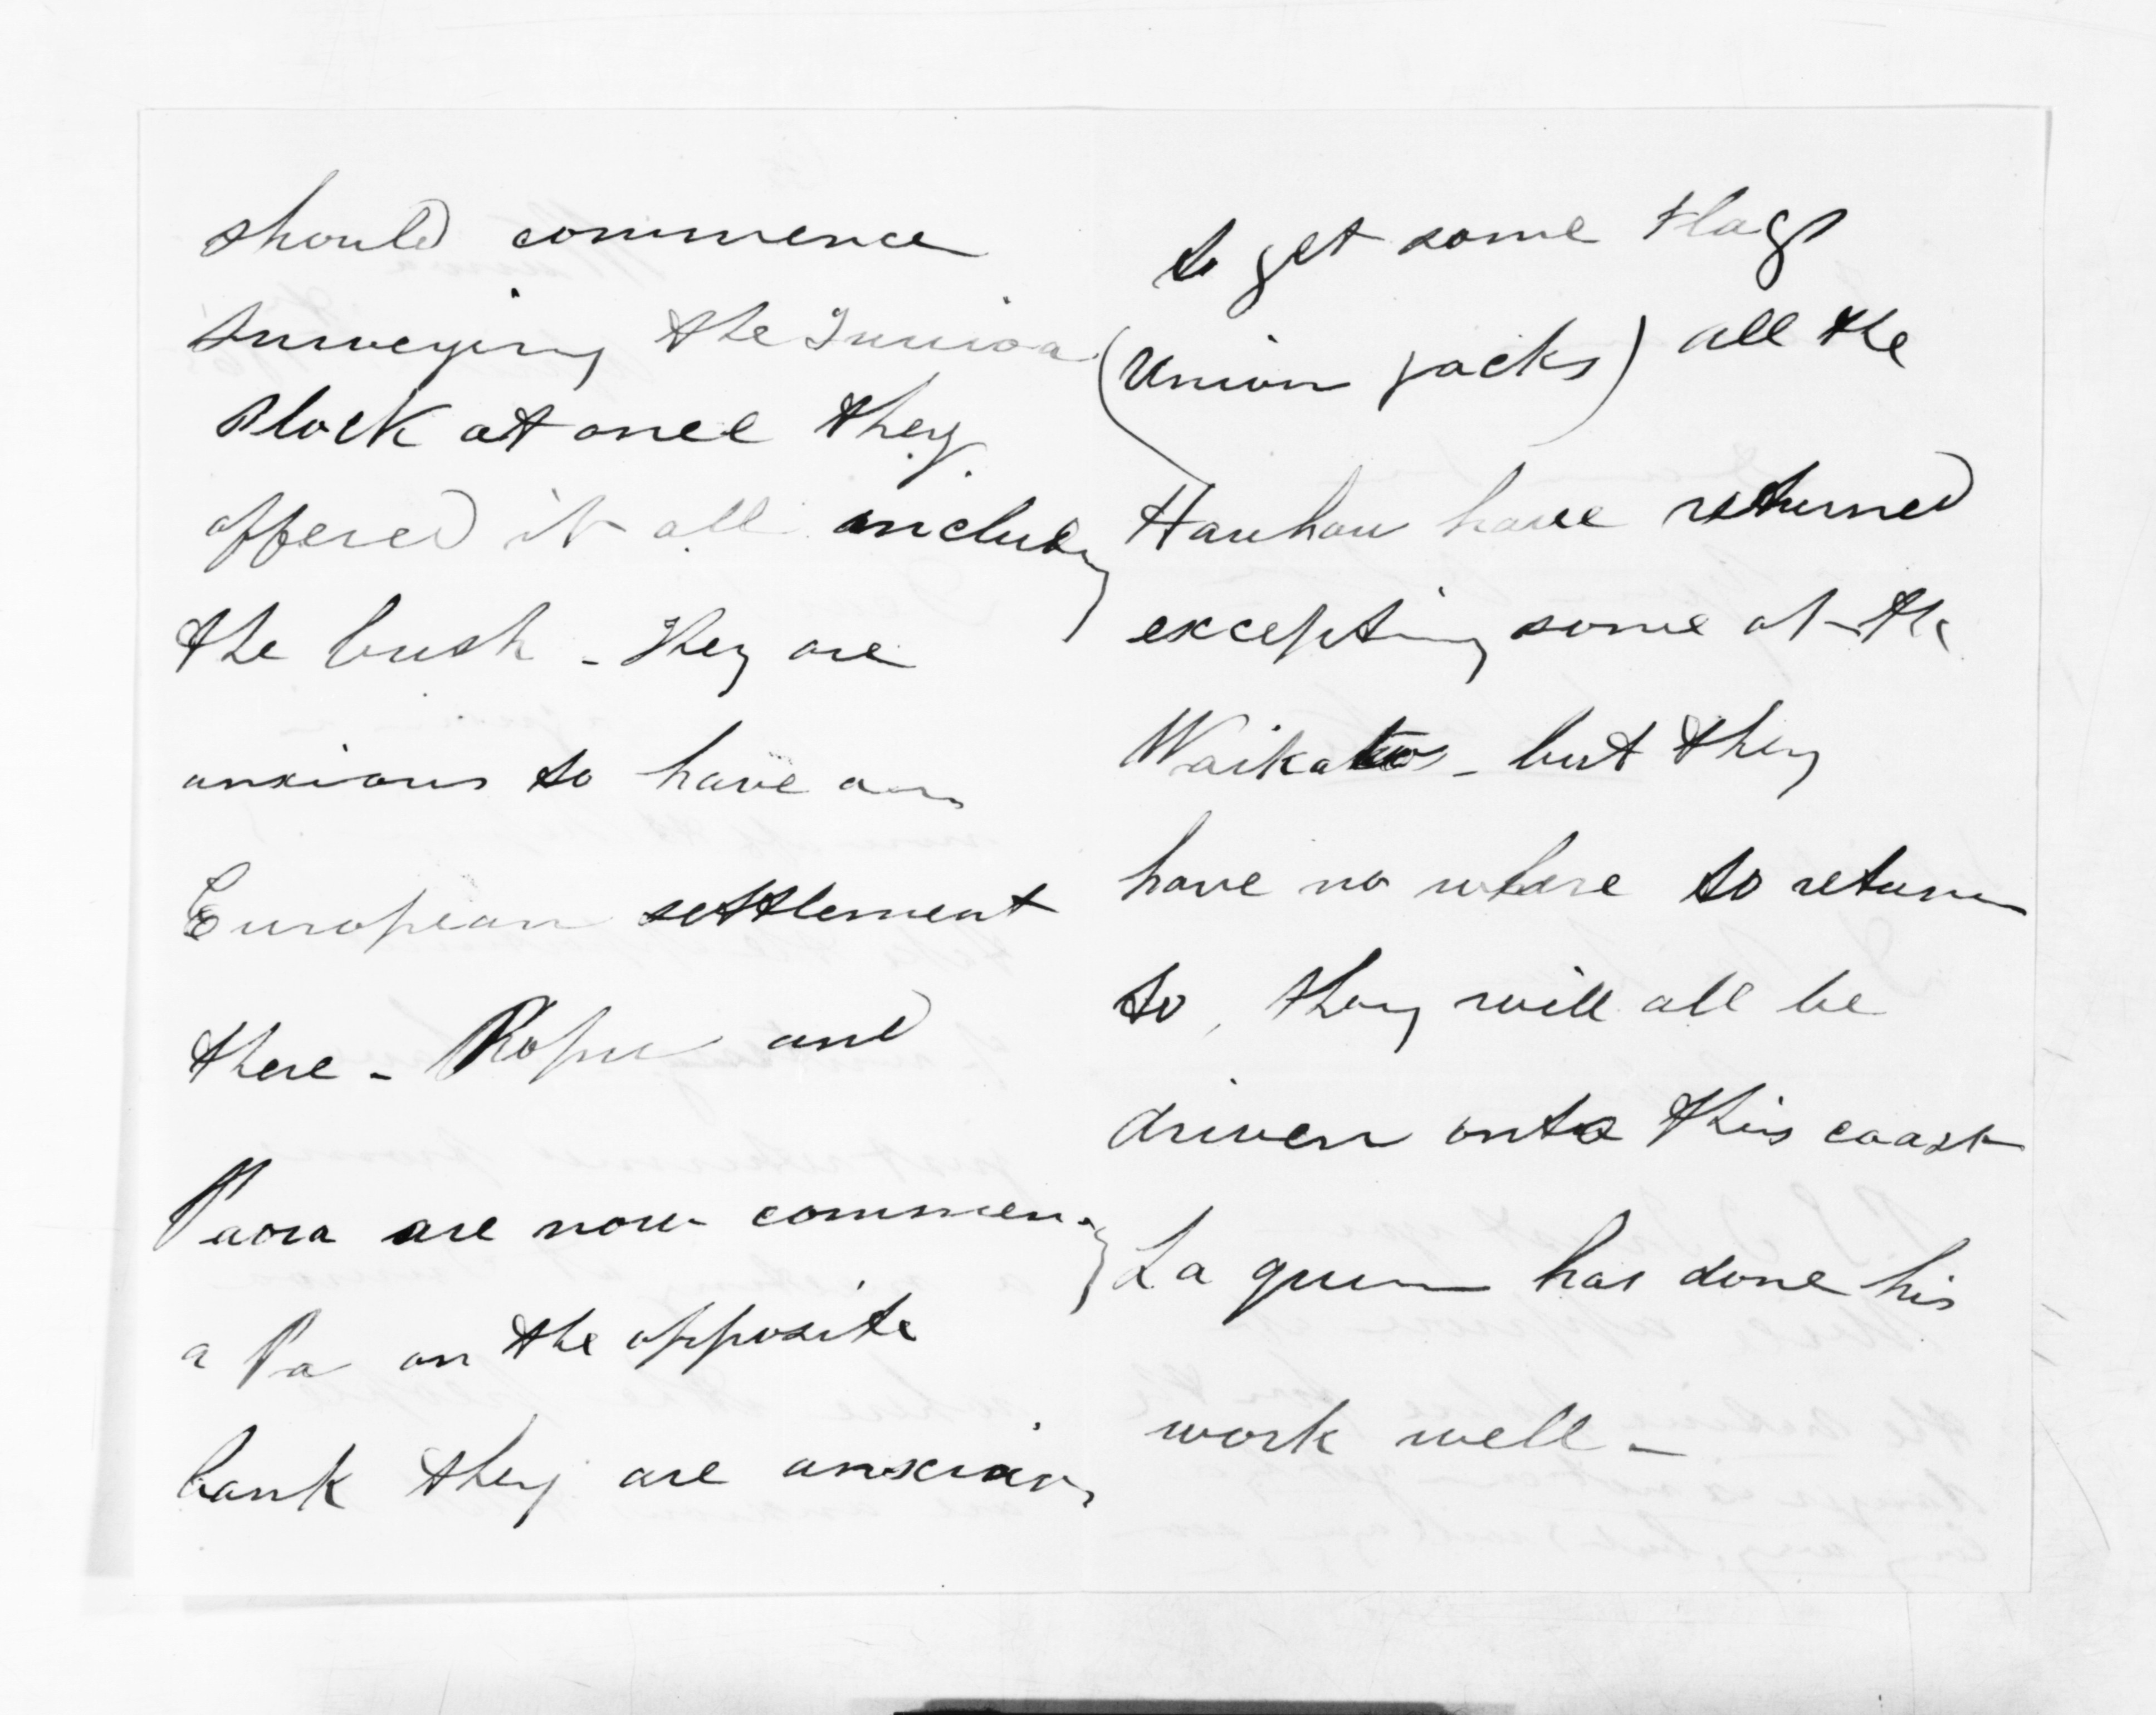 should commence
surveying the Turiroa
Block at once they
offered it all including
the bush - They are
anxious to have an
European settlement
there - Kopu and
Paora are now commencing
a Pa on the opposite
bank they are anxious
to get some Flags
(Union jacks) all the
Hauhau have returned
excepting some of the
Waikatos - but they
have no where to return
to, they will all be
driven onto this coast
has done his
work well -